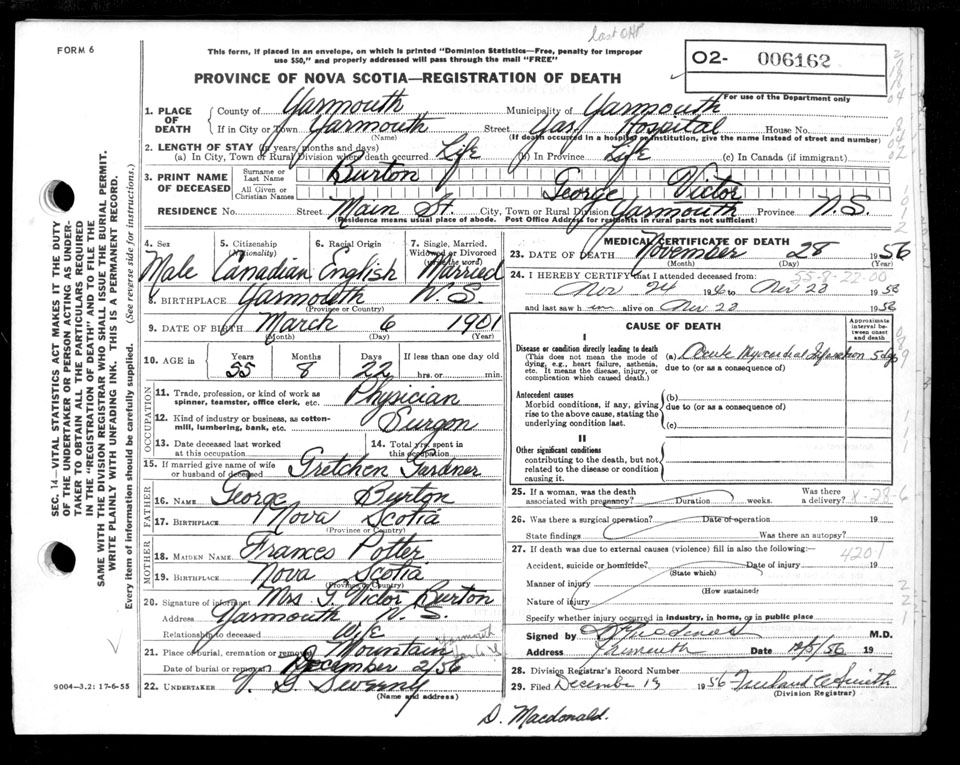 last OHP
FORM 6
This form, if placed in an envelope, on which is printed "Dominion Statistics—Free, penalty for improper
use $50," and properly addressed will pass through the mail "FREE"
PROVINCE OF NOVA SCOTIA—REGISTRATION OF DEATH
02- 006162
For use of the Department only
1. PLACE OF DEATH County of Yarmouth Municipality of Yarmouth
If in City or Town Yarmouth (Name) Street Yar. Hospital House No.
(If death occurred in a hospital or institution, give the name instead of street and number)
2. LENGTH OF STAY (in years, months and days)
(a) In City, Town or Rural Division where death occurred Life (b) In Province Life (c) In Canada (if immigrant)
3. PRINT NAME OF DECEASED Surname or Last Name Burton
All Given or Christian Names George Victor
RESIDENCE No. Street Main St. City, Town or Rural Division Yarmouth Province N.S.
(Residence means usual place of abode. Post Office Address for residents in rural parts not sufficient)
4. Sex 5. Citizenship (Nationality) 6. Racial Origin 7. Single, Married, Widowed or Divorced (write the word)
Male Canadian English Married
8. BIRTHPLACE Yarmouth N.S.
(Province or Country)
9. DATE OF BIRTH March 6 1901
(Month) (Day) (Year)
10. AGE in Years Months Days If less than one day old
55 8 22 hrs. or min.
OCCUPATION
11. Trade, profession, or kind of work as spinner, teamster, office clerk, etc. Physician
12. Kind of industry or business, as cotton-mill, lumbering, bank, etc. Surgon
13. Date deceased last worked at this occupation 14. Total yrs. spent in this occupation
15. If married give name of wife or husband of deceased Gretchen Gardner
FATHER
16. NAME George Burton
17. BIRTHPLACE Nova Scotia
(Province or Country)
MOTHER
18. MAIDEN NAME Frances Potter
19. BIRTHPLACE Nova Scotia
(Province or Country)
20. Signature of informant Mrs G. Victor Burton
Address Yarmouth N.S.
Relationship to deceased Wife
21. Place of burial, cremation or removal Mountain Yarmouth
Date of burial or removal December 2/56
22. UNDERTAKER Sweeny
(Name and address)
9004—3.2: 17-6-55
MEDICAL CERTIFICATE OF DEATH
23. DATE OF DEATH November 28 1956
(Month) (Day) (Year)
55-8-22-00
24. I HEREBY CERTIFY that I attended deceased from:
Nov 24 1956 to Nov 28 1956
and last saw him alive on Nov 28 1956
CAUSE OF DEATH Approximate interval between onset and death
I
Disease or condition directly leading to death
(This does not mean the mode of dying, e.g., heart failure, asthenia, etc. It means the disease, injury, or complication which caused death.)
(a) Acute Myocardial Infarction 5 dys
due to (or as a consequence of)
Antecedent causes
Morbid conditions, if any, giving rise to the above cause, stating the underlying condition last.
(b)
due to (or as a consequence of)
(c)
II
Other significant conditions
contributing to the death, but not related to the disease or condition causing it.
25. If a woman, was the death associated with pregnancy? Duration weeks. Was there a delivery?
26. Was there a surgical operation? Date of operation 19
State findings Was there an autopsy?
27. If death was due to external causes (violence) fill in also the following:—
4201
Accident, suicide or homicide? Date of injury 19
(State which)
Manner of injury
(How sustained)
Nature of injury
Specify whether injury occurred in industry, in home, or in public place
Signed by M.D.
Address Yarmouth Date 12/5/56 19
28. Division Registrar's Record Number
29. Filed December 13 1956
(Division Registrar)
D. Macdonald.
SEC. 14—VITAL STATISTICS ACT MAKES IT THE DUTY
OF THE UNDERTAKER OR PERSON ACTING AS UNDER-
TAKER TO OBTAIN ALL THE PARTICULARS REQUIRED
IN THE "REGISTRATION OF DEATH" AND TO FILE THE
SAME WITH THE DIVISION REGISTRAR WHO SHALL ISSUE THE BURIAL PERMIT.
WRITE PLAINLY WITH UNFADING INK. THIS IS A PERMANENT RECORD.
Every item of information should be carefully supplied. (See reverse side for instructions.)